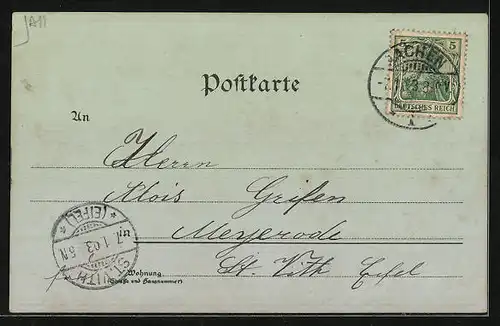 JA11
5 5
AACHEN
DEUTSCHES REICH
Postkarte
An
Herrn
Alois Greifen
in Meyerode
St. Vith Eifel
Wohnung
(Straße und Hausnummer)
ST. VITH
(EIFEL)
7.1.03. 5-6 N